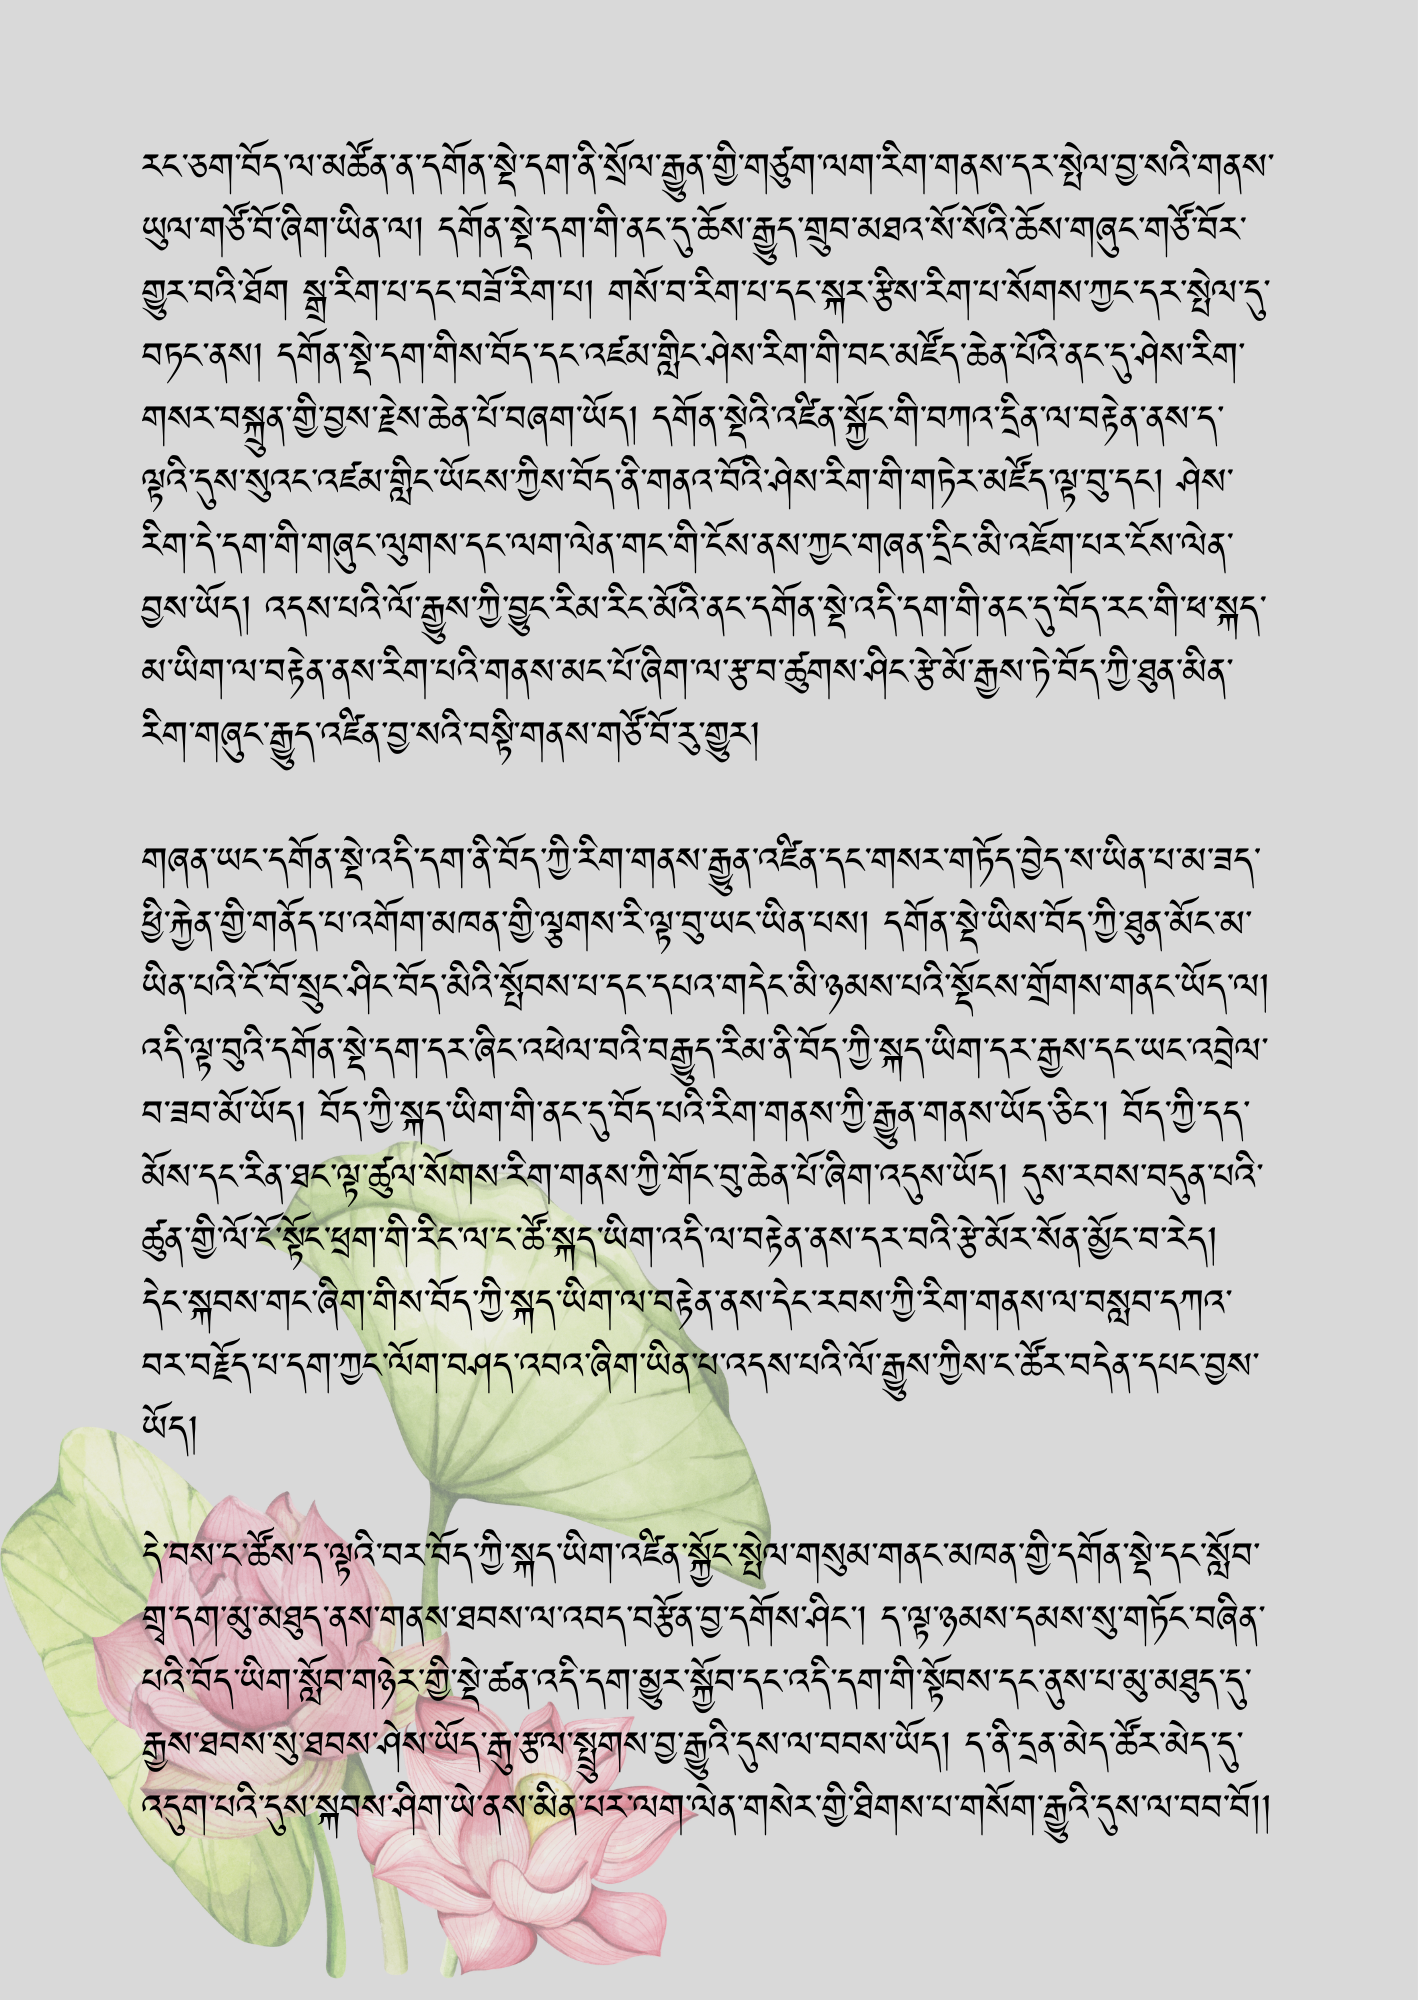 རང་ཅག་བོད་ལ་མཚོན་ན་དགོན་སྡེ་དག་ནི་སྲོལ་རྒྱུན་གྱི་གཙུག་ལག་རིག་གནས་དར་སྤེལ་བྱ་སའི་གནས་
ཡུལ་གཙོ་བོ་ཞིག་ཡིན་ལ། དགོན་སྡེ་དག་གི་ནང་དུ་ཆོས་རྒྱུད་གྲུབ་མཐའ་སོ་སོའི་ཆོས་གཞུང་གཙོ་བོར་
གྱུར་བའི་ཐོག སྒྲ་རིག་པ་དང་བཟོ་རིག་པ། གསོ་བ་རིག་པ་དང་སྐར་རྩིས་རིག་པ་སོགས་ཀྱང་དར་སྤེལ་དུ་
བཏང་ནས། དགོན་སྡེ་དག་གིས་བོད་དང་འཛམ་གླིང་ཤེས་རིག་གི་བང་མཛོད་ཆེན་པོའི་ནང་དུ་ཤེས་རིག་
གསར་བསྐྲུན་གྱི་བྱས་རྗེས་ཆེན་པོ་བཞག་ཡོད། དགོན་སྡེའི་འཛིན་སྐྱོང་གི་བཀའ་དྲིན་ལ་བརྟེན་ནས་ད་
ལྟའི་དུས་སུའང་འཛམ་གླིང་ཡོངས་ཀྱིས་བོད་ནི་གནའ་བོའི་ཤེས་རིག་གི་གཏེར་མཛོད་ལྟ་བུ་དང། ཤེས་
རིག་དེ་དག་གི་གཞུང་ལུགས་དང་ལག་ལེན་གང་གི་ངོས་ནས་ཀྱང་གཞན་དྲིང་མི་འཇོག་པར་ངོས་ལེན་
བྱས་ཡོད། འདས་པའི་ལོ་རྒྱུས་ཀྱི་བྱུང་རིམ་རིང་མོའི་ནང་དགོན་སྡེ་འདི་དག་གི་ནང་དུ་བོད་རང་གི་ཕ་སྐད་
མ་ཡིག་ལ་བརྟེན་ནས་རིག་པའི་གནས་མང་པོ་ཞིག་ལ་རྩ་བ་ཚུགས་ཤིང་རྩེ་མོ་རྒྱས་ཏེ་བོད་ཀྱི་ཐུན་མིན་
རིག་གཞུང་རྒྱུད་འཛིན་བྱ་སའི་བསྟི་གནས་གཙོ་བོ་རུ་གྱུར།
གཞན་ཡང་དགོན་སྡེ་འདི་དག་ནི་བོད་ཀྱི་རིག་གནས་རྒྱུན་འཛིན་དང་གསར་གཏོད་བྱེད་ས་ཡིན་པ་མ་ཟད་
ཕྱི་རྐྱེན་གྱི་གནོད་པ་འགོག་མཁན་གྱི་ལྕགས་རི་ལྟ་བུ་ཡང་ཡིན་པས། དགོན་སྡེ་ཡིས་བོད་ཀྱི་ཐུན་མོང་མ་
ཡིན་པའི་ངོ་བོ་སྲུང་ཤིང་བོད་མིའི་སྤོབས་པ་དང་དཔའ་གདེང་མི་ཉམས་པའི་སྡོངས་གྲོགས་གནང་ཡོད་ལ།
འདི་ལྟ་བུའི་དགོན་སྡེ་དག་དར་ཞིང་འཕེལ་བའི་བརྒྱུད་རིམ་ནི་བོད་ཀྱི་སྐད་ཡིག་དར་རྒྱས་དང་ཡང་འབྲེལ་
བ་ཟབ་མོ་ཡོད། བོད་ཀྱི་སྐད་ཡིག་གི་ནང་དུ་བོད་པའི་རིག་གནས་ཀྱི་རྒྱུན་གནས་ཡོད་ཅིང་། བོད་ཀྱི་དད་
མོས་དང་རིན་ཐང་ལྟ་ཚུལ་སོགས་རིག་གནས་ཀྱི་གོང་བུ་ཆེན་པོ་ཞིག་འདུས་ཡོད། དུས་རབས་བདུན་པའི་
ཚུན་གྱི་ལོ་ངོ་སྟོང་ཕྲག་གི་རིང་ལ་ང་ཚོ་སྐད་ཡིག་འདི་ལ་བརྟེན་ནས་དར་བའི་རྩེ་མོར་སོན་མྱོང་བ་རེད།
དེང་སྐབས་གང་ཞིག་གིས་བོད་ཀྱི་སྐད་ཡིག་ལ་བརྟེན་ནས་དེང་རབས་ཀྱི་རིག་གནས་ལ་བསླབ་དཀའ་
བར་བརྗོད་པ་དག་ཀྱང་ལོག་བཤད་འབའ་ཞིག་ཡིན་པ་འདས་པའི་ལོ་རྒྱུས་ཀྱིས་ང་ཚོར་བདེན་དཔང་བྱས་
ཡོད།
དེ་བས་ང་ཚོས་ད་ལྟའི་བར་བོད་ཀྱི་སྐད་ཡིག་འཛིན་སྐྱོང་སྤེལ་གསུམ་གནང་མཁན་གྱི་དགོན་སྡེ་དང་སློབ་
གྲྭ་དག་མུ་མཐུད་ནས་གནས་ཐབས་ལ་འབད་བརྩོན་བྱ་དགོས་ཤིང་། ད་ལྟ་ཉམས་དམས་སུ་གཏོང་བཞིན་
པའི་བོད་ཡིག་སློབ་གཉེར་གྱི་སྡེ་ཚན་འདི་དག་མྱུར་སྐྱོབ་དང་འདི་དག་གི་སྟོབས་དང་ནུས་པ་མུ་མཐུད་དུ་
རྒྱས་ཐབས་སུ་ཐབས་ཤེས་ཡོད་རྒུ་རྩལ་སྤྲུགས་བྱ་རྒྱུའི་དུས་ལ་བབས་ཡོད། ད་ནི་དྲན་མེད་ཚོར་མེད་དུ་
འདུག་པའི་དུས་སྐབས་ཤིག་ཡེ་ནས་མིན་པར་ལག་ལེན་གསེར་གྱི་ཐིགས་པ་གསོག་རྒྱུའི་དུས་ལ་བབ་བོ།།